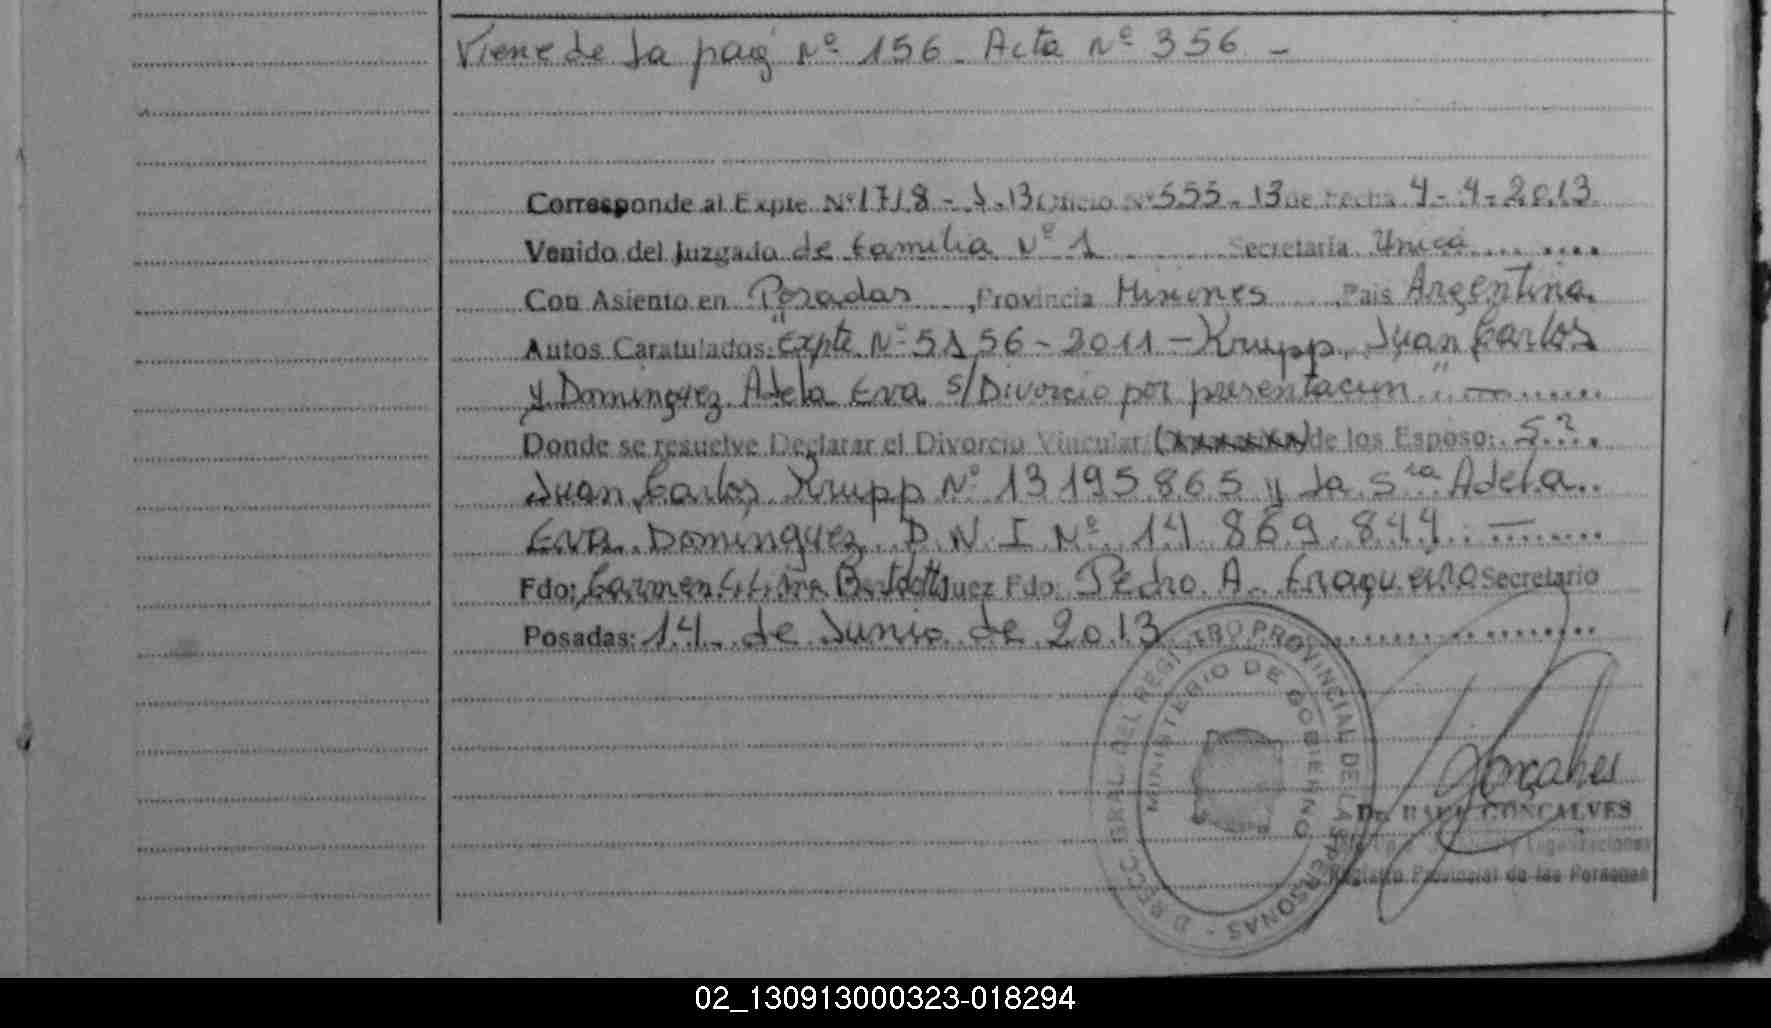 Viene de la pag Nº 156 - Acta Nº 356 -
Corresponde al Expte. Nº 1718 - 13 Oficio Nº 555 - 13 de Fecha 4 - 4 - 2013
Venido del Juzgado de Familia Nº 1 Secretaría Unica
Con Asiento en Posadas, Provincia Misiones, Pais Argentina.
Autos Caratulados: "Expte Nº 5156 - 2011 - Krupp, Juan Carlos
y Dominguez Adela Eva s/Divorcio por presentacun"
Donde se resuelve Declarar el Divorcio Vincular ( ) de los Esposo: Sr.
Juan Carlos Krupp Nº 13195865 y la Sra Adela
Eva Dominguez D N I Nº 14.869.844. -
Fdo: Carmen Juez Fdo: Pedro A. Secretario
Posadas: 14 de Junio de 2013
DIRECC. GRAL. DEL REGISTRO PROVINCIAL DE LAS PERSONAS -
MINISTERIO DE GOBIERNO
Gonçalves
Dr. RAUL GONCALVES
y Legalizaciones
Registro Provincial de las Personas
02_130913000323-018294